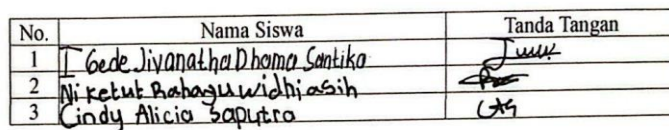 No. Nama Siswa Tanda Tangan
1 I Gede Jivanatha Dhama Santika
2 Ni Ketut Rahayu widhiasih
3 Cindy Alicia Saputra